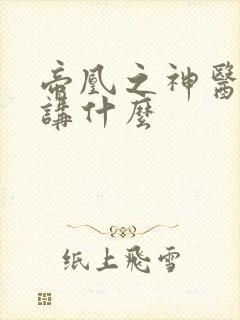 帝凰之神醫
講什麼
纸上飛雪